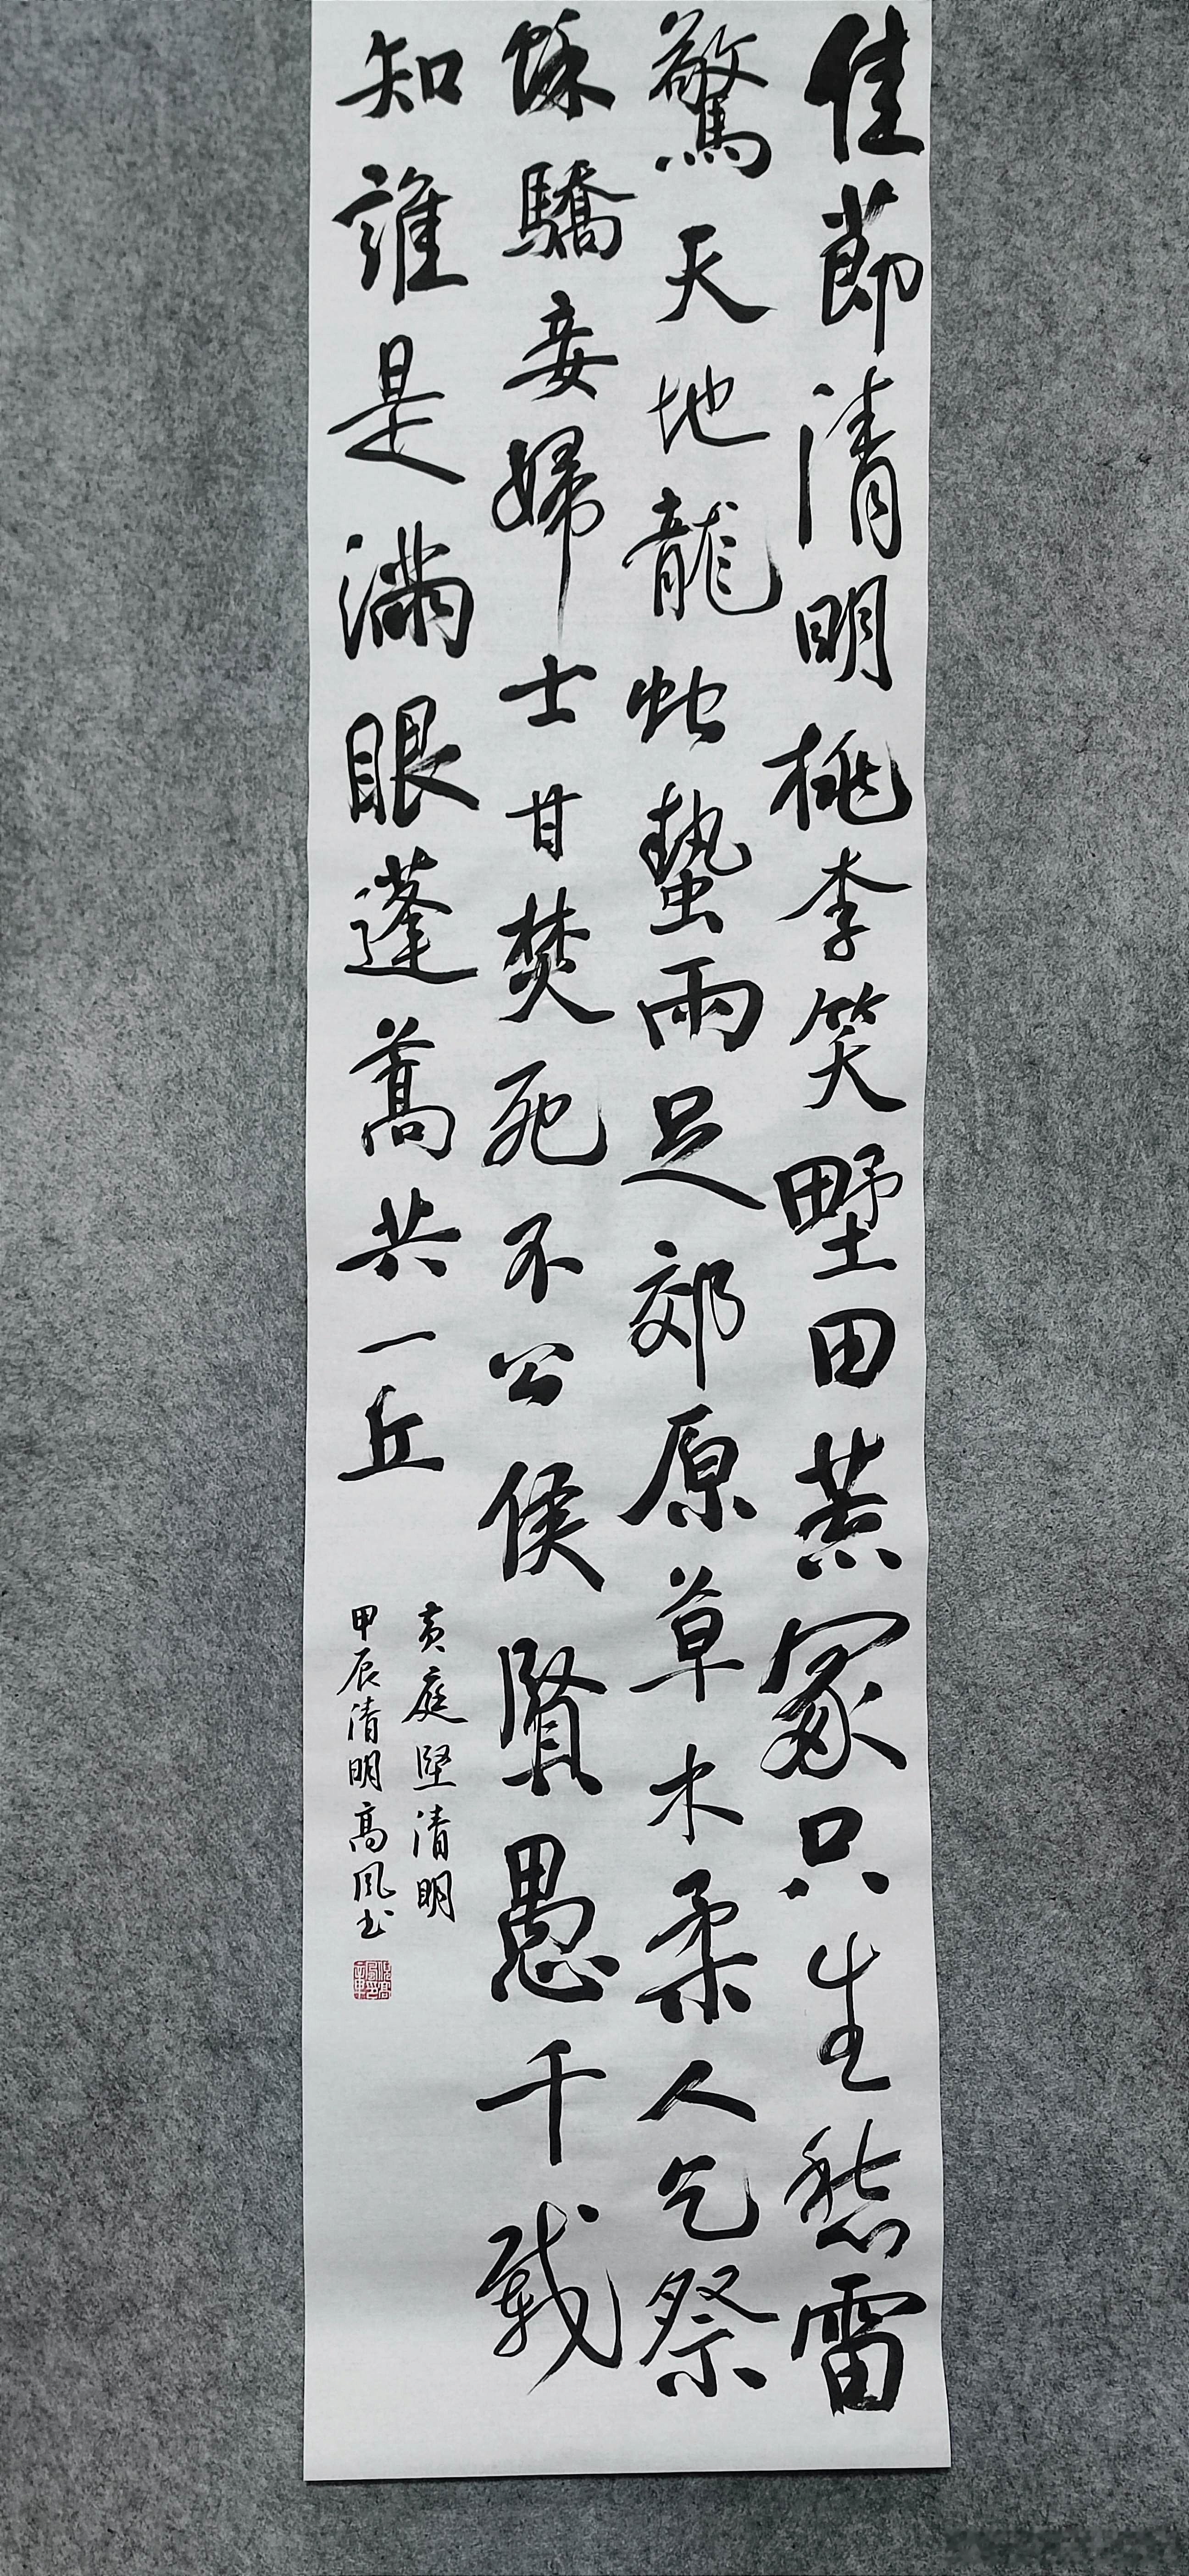 佳節清明桃李笑野田荒冢只生愁雷
驚天地龍蛇蟄雨足郊原草木柔人乞祭
馀驕妾婦士甘焚死不公侯賢愚千載
知誰是滿眼蓬蒿共一丘
黃庭堅清明
甲辰清明高風书